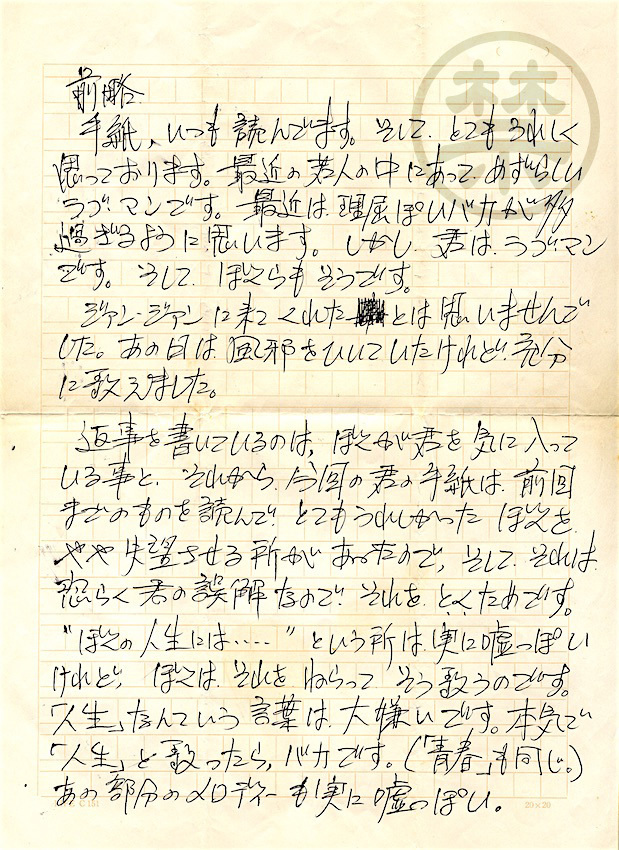 禁
前略
手紙、いつも読んでます。そして、とてもうれしく
思っております。最近の若人の中にあって、めずらしい
ラブ・マンです。最近は理屈ぽいバカが多
過ぎるように思います。しかし、君は、ラブ・マン
です。そして、ぼくらもそうです。
ジァン・ジァンに来てくれたとは思いませんで
した。あの日は風邪をひいていたけれど、充分
に歌えました。
返事を書いているのは、ぼくが君を気に入って
いる事と、それから、今回の君の手紙は、前回
までのものを読んで、とてもうれしかったぼくを、
やや失望させる所があったので、そして、それは、
恐らく君の誤解なので、それを、とくためです。
“ぼくの人生には‥‥”という所は、実に嘘っぽい
けれど、ぼくは、それをねらって、そう歌うのです。
「人生」なんていう言葉は、大嫌いです。本気で
「人生」と歌ったら、バカです。(「青春」も同じ。)
あの部分のメロディーも実に嘘っぽい。
20×20